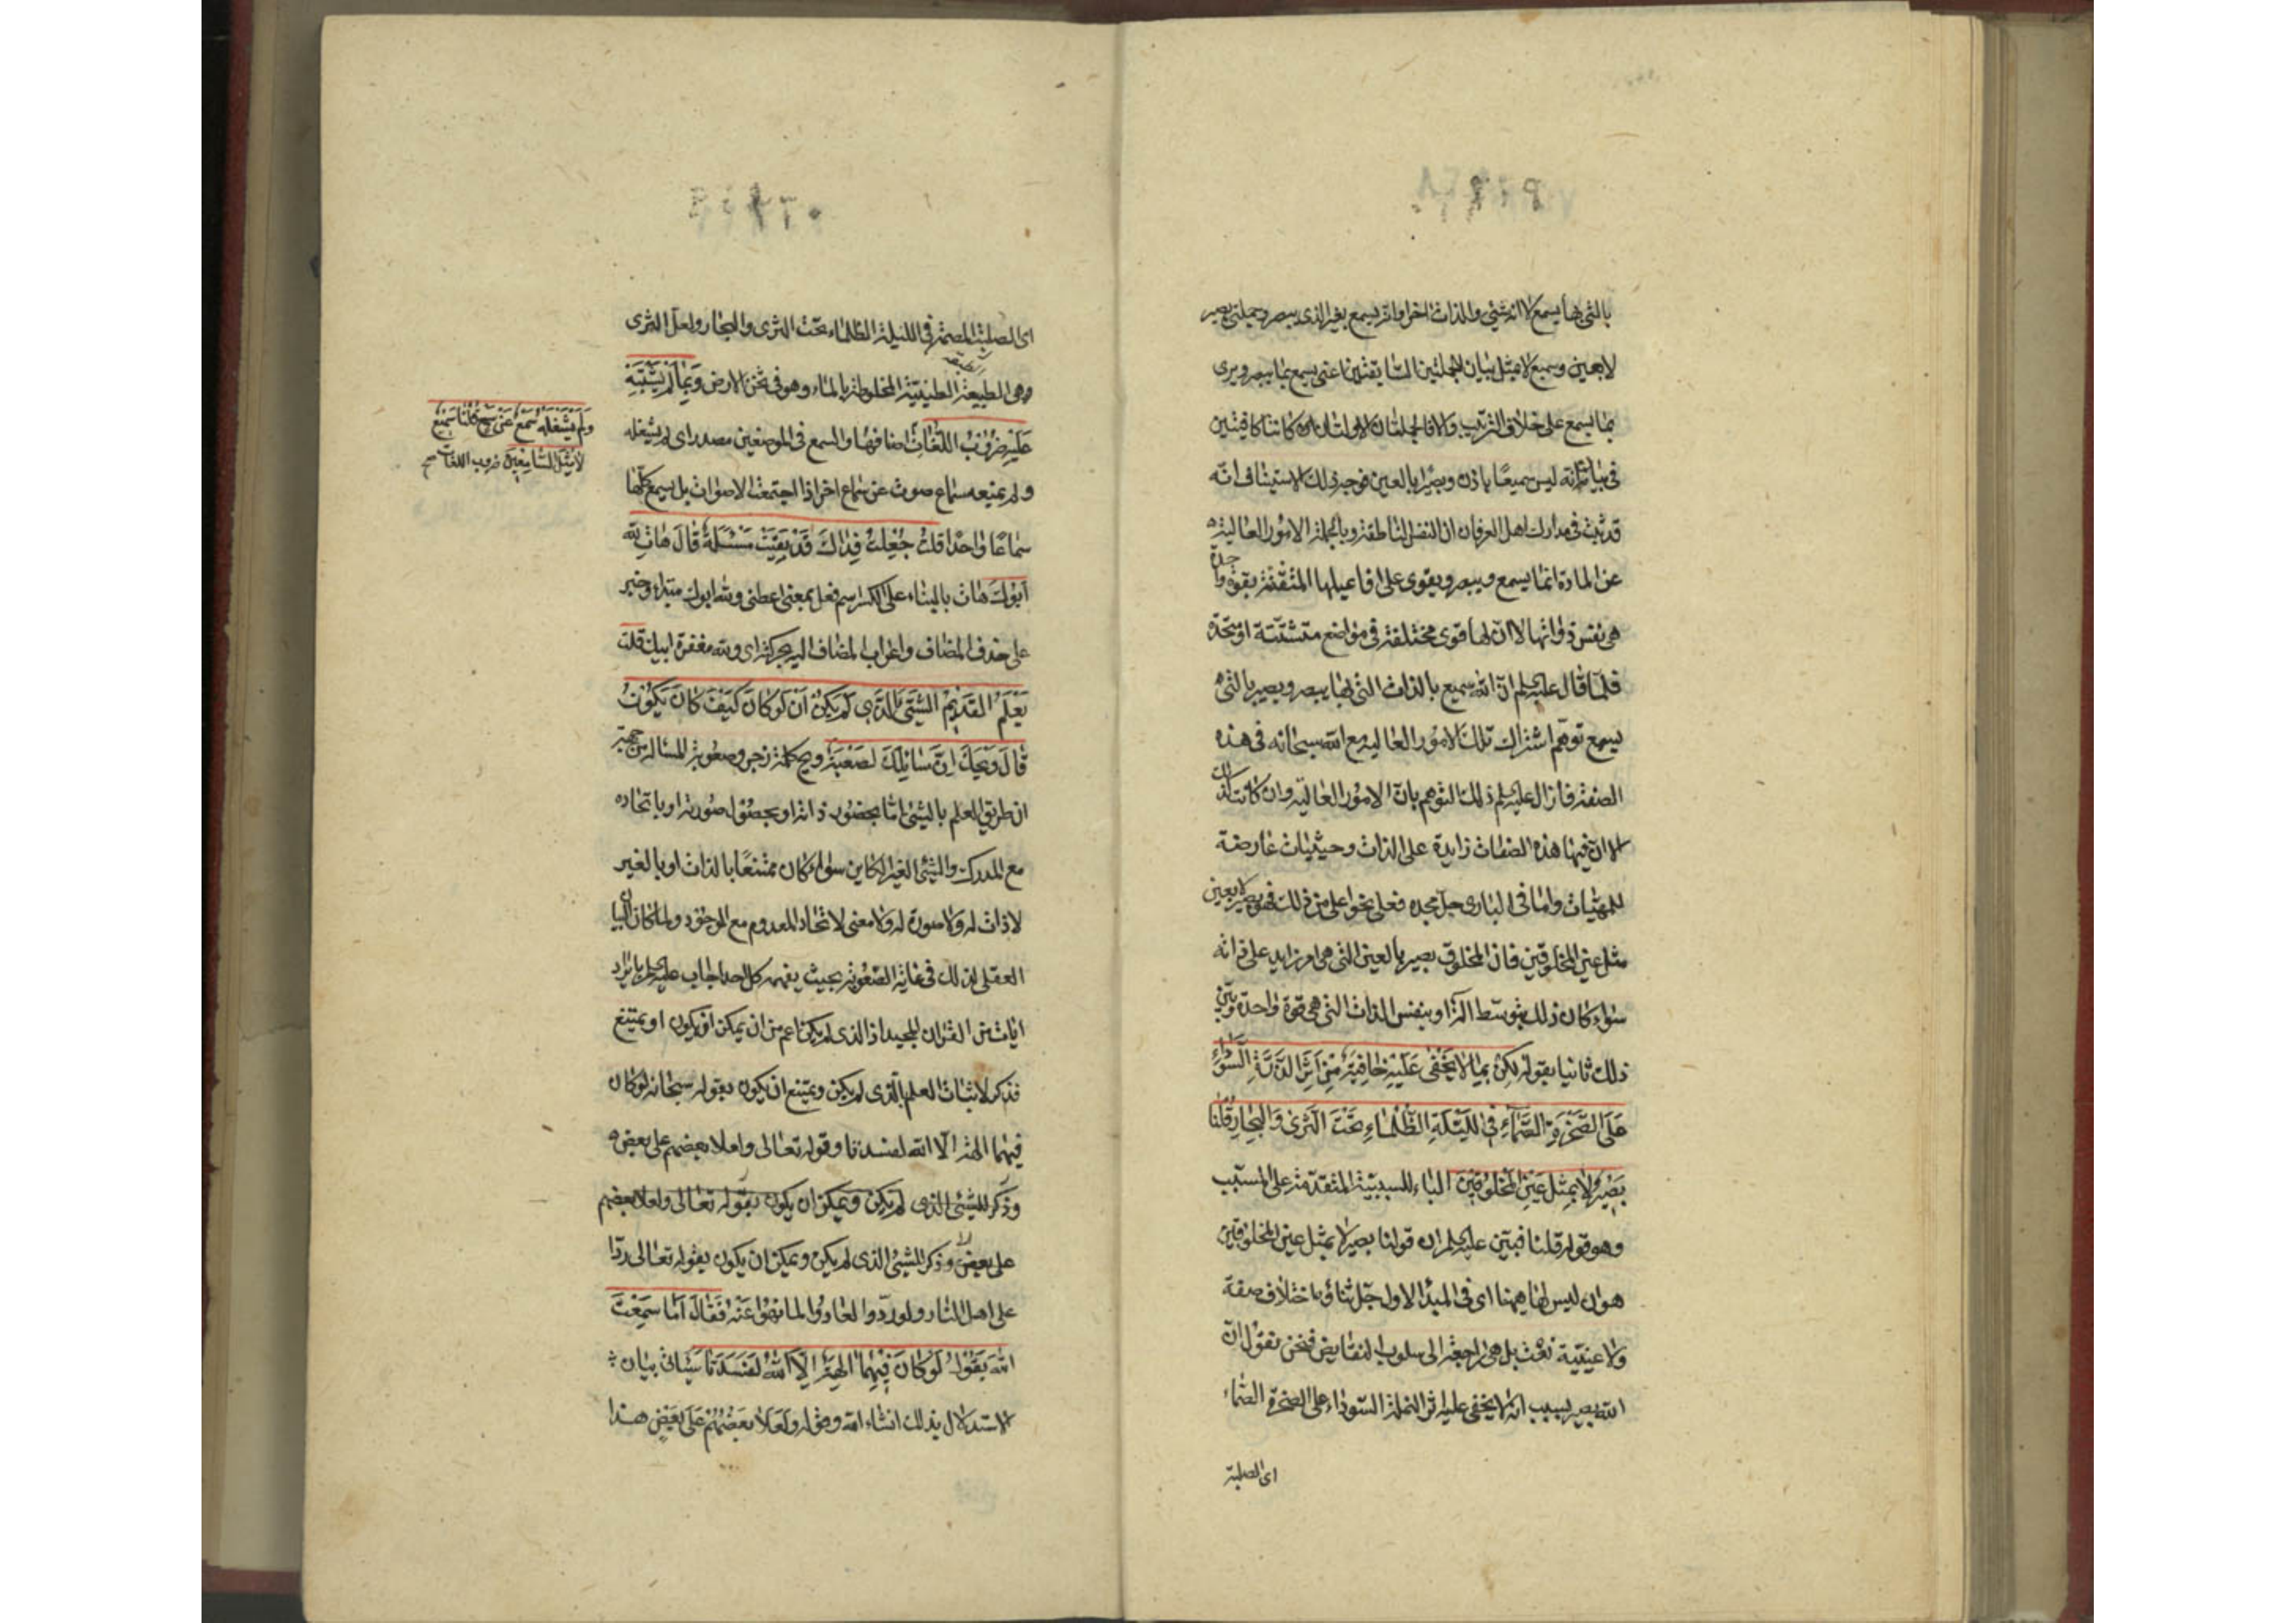 بالتي بها يسمع لا انه شيئ والذات اخر وانه يسمع بغير الذي يبصر وجملتي بصير
لا بعين وسميع لا بمثل بيان للجملتين السابقتين اعني يسمع بما يبصر ويرى
بما يسمع على خلاف الترتيب والا فالجملتان الاولتان كانتا كافيتين
في بيان انه ليس سميعًا باذن وبصيرا بالعين فوجه ذلك الاستيناف انه
قد ثبت في مدارك اهل العرفان ان النفس الناطقة وبالجملة الامور العالية
عن المادة انما يسمع ويبصر ويقوى على افاعيلها المتقنة بقوة واحدة
هي نفس ذواتها لا ان لها قوى مختلفة في مواضع متشتتة او متحدة
فلما قال عليه السلم ان الله سميع بالذات التي بها يبصر وبصير بالتي
يسمع توهم اشتراك تلك الامور العالية مع الله سبحانه في هذه
الصفة فازال عليه السلم ذلك التوهم بان الامور العالية وان كانت كذلك
الا ان فيها هذه الصفات زايدة على الذات وحيثيات عارضة
للمهيات واما في الباري جل مجده فعلى نحو اعلى من ذلك فهو بصير لا بعين
مثل عين المخلوقين فان المخلوق بصير بالعين التي هي امر زايد على ذاته
سواء كان ذلك بتوسط الة او بنفس الذات التي هي قوة واحدة وبين
ذلك ثانيا بقوله لكن بما لا يخفى عليه خافية من اثر الذرة السوداء
على الصخرة الصماء في الليلة الظلماء تحت الثرى والبحار قلنا
بصير لا بمثل عين المخلوقين الباء للسببية المتقدمة على المسبب
وهو قوله قلنا فبين عليه السلم ان قولنا بصير لا بمثل عين المخلوقين
هو ان ليس لها ههنا اي في المبدا الاول جل ثناؤه اختلاف صفة
ولا عينية نعت بل هي راجعة الى سلوب النقايض فنحن نقول ان
الله بصير بسبب انه لا يخفى عليه اثر النملة السوداء على الصخرة الصماء
اي الصلبة
اي الصلبة المصمتة في الليلة الظلماء تحت الثرى والبحار ولعل الثرى
وهي الطبيعة الطينية المخلوطة بالماء وهو في تخن الارض وبما لم يشتبه
عليه ضروب اللغات اصنافها والسمع في الموضعين مصدر اي لم يشغله
ولم يمنعه سماع صوت عن سماع اخر اذا اجتمعت الاصوات بل يسمع كلها
سماعا واحدا قلت جعلت فداك قد بقيت مسئلة قال هات لله
ابوك هات بالبناء على الكسر اسم فعل بمعنى اعطني ولله ابوك مبتداء وخبر
على حذف المضاف واعراب المضاف اليه بحركته اي ولله مغفرة ابيك قلت
يعلم القديم الشيئ الذي لم يكن ان لو كان كيف كان يكون
قال ويحك ان مسائلك لصعبة ويح كلمة زجر وصعوبة المسالة من جهة
ان طريق العلم بالشيئ اما بحضور ذاته او بحصول صورته او باتحاده
مع المدرك والشيئ الغير الكاين سواء كان ممتنعًا بالذات او بالغير
لا ذات له ولا صورة له ولا معنى لاتحاد المعدوم مع الموجود ولما كان البيان
العقلي لذلك في غاية الصعوبة بحيث يفهمه كل احد اجاب عليه السلم بايراد
ايات من القران المجيد اذ الذي لم يكن اعم من ان يمكن ان يكون او يمتنع
فذكر لاثبات العلم بالذي لم يكن ويمتنع ان يكون بقوله سبحانه لو كان
فيهما الهة الا الله لفسدتا وقوله تعالى ولعلا بعضهم على بعض
وذكر للشيئ الذي لم يكن ويمكن ان يكون بقوله تعالى ولعلا بعضهم
على بعض وذكر للشيئ الذي لم يكن ويمكن ان يكون بقوله تعالى ردا
على اهل النار ولو ردوا لعادوا لما نهوا عنه فقال اما سمعت
الله يقول لو كان فيهما الهة الا الله لفسدتا سياتي بيان
الاستدلال بذلك انشاء الله وقوله ولعلا بعضهم على بعض هذا
ولم يشغله سمع عن سمع قلنا سميع
لا بمثل السامعين ضروب اللغات صح